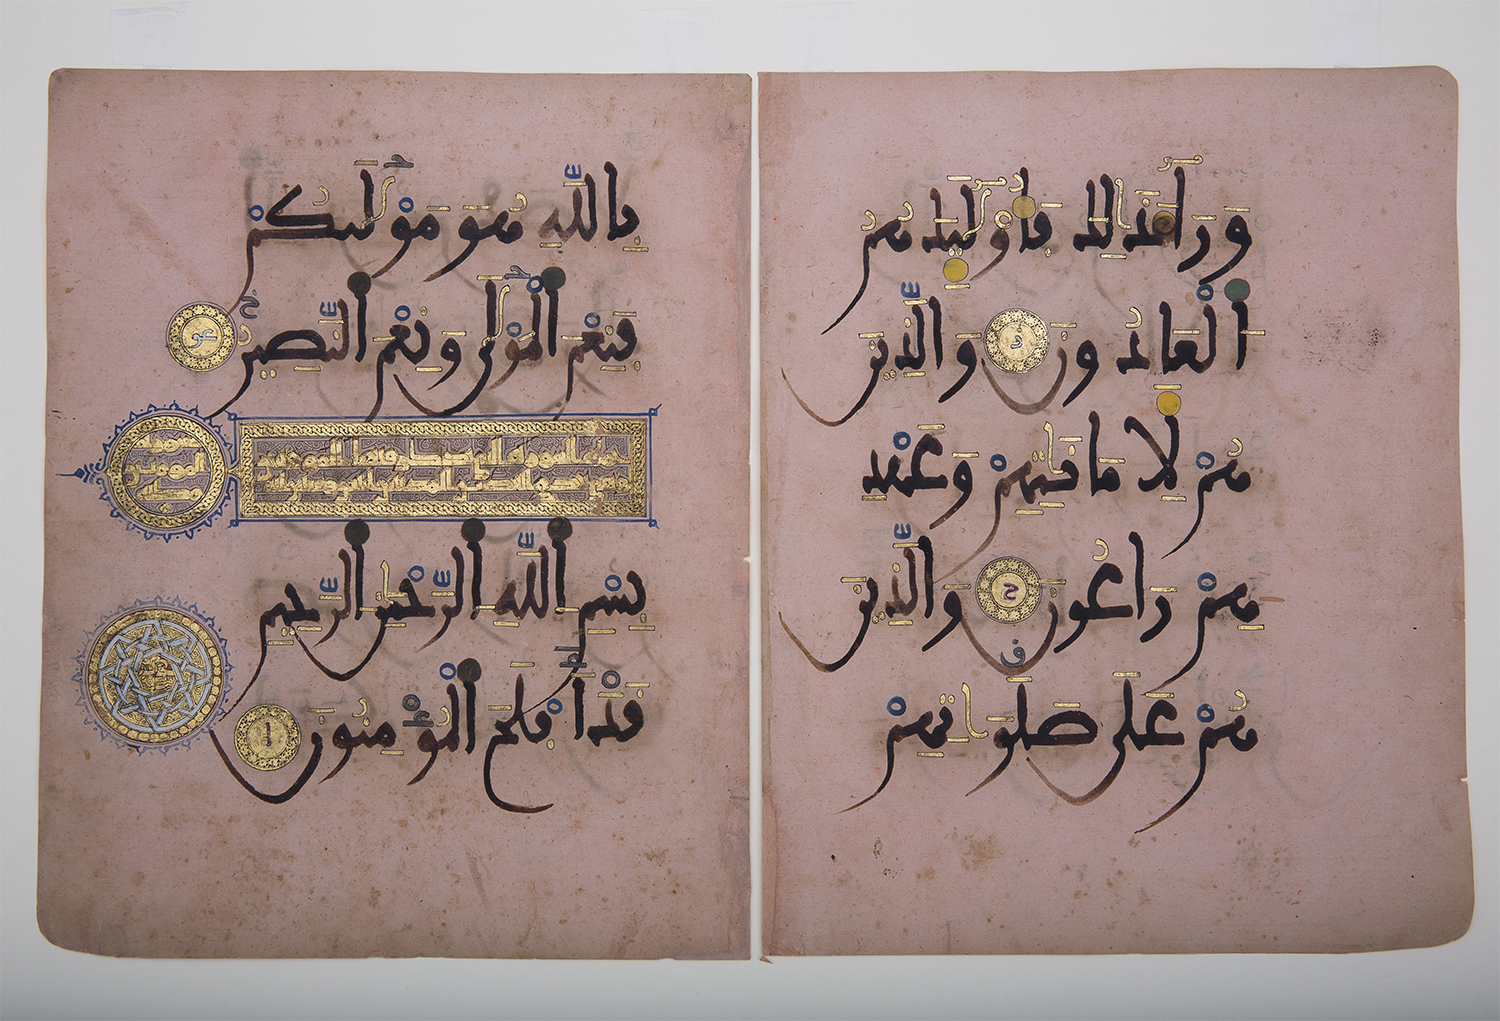 وَرَآءَ ذَٰلِكَ فَأُوْلَٰئِكَ هُمُ
الْعَادُونَ وَالَّذِينَ
هُمْ لِأَمَٰنَٰتِهِمْ وَعَهْدِ
هِمْ رَاعُونَ وَالَّذِينَ
هُمْ عَلَىٰ صَلَوَاتِهِمْ
بِاللَّهِ هُوَ مَوْلَىٰكُمْ
فَنِعْمَ الْمَوْلَىٰ وَنِعْمَ النَّصِيرُ
بِسْمِ اللَّهِ الرَّحْمَٰنِ الرَّحِيمِ
قَدْ أَفْلَحَ الْمُؤْمِنُونَ